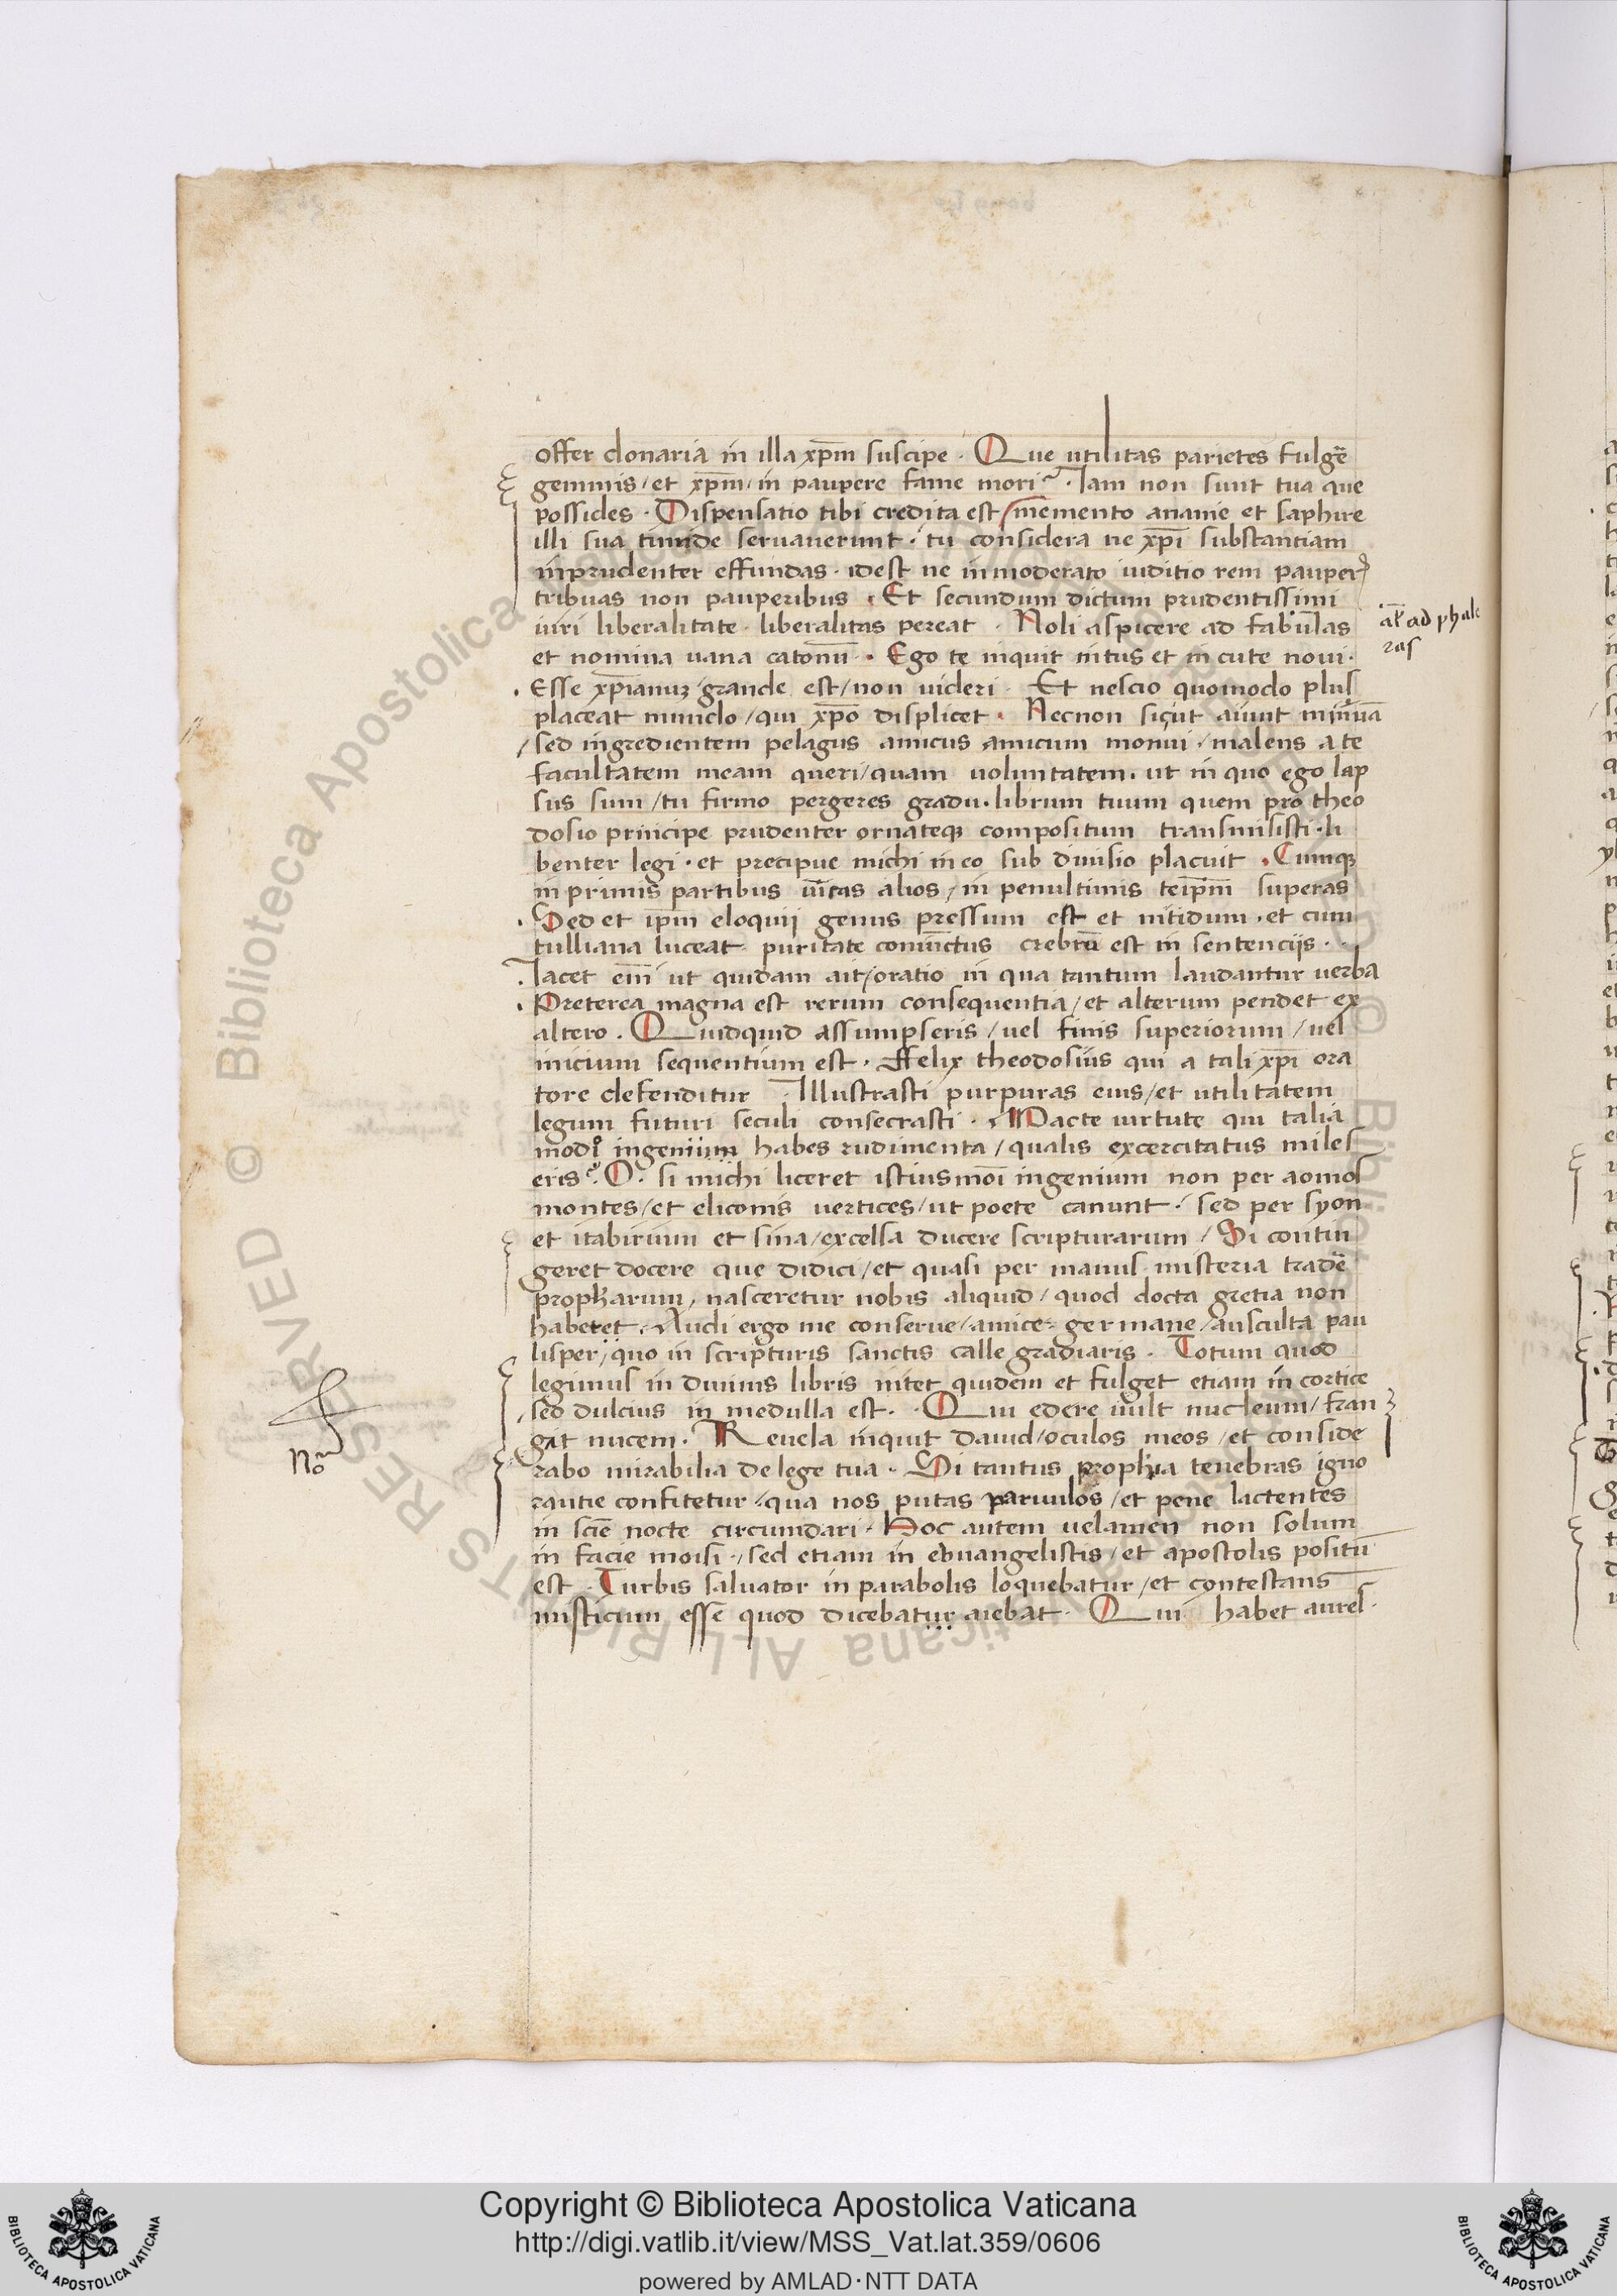 offer donaria in illa xp̄m suscipe · Que utilitas parietes fulgē
gemmis / et xp̄m / in paupere fame mori · Iam non sunt tua que
possides · Dispensatio tibi credita est / memento ananie et saphire
illi sua timide servaverunt · tu considera ne xp̄i substantiam
inprudenter effundas · idest ne inmoderato iuditio rem pauper
tribuas non pauperibus · Et secundum dictum prudentissimi
uiri liberalitate · liberalitas pereat · Noli aspicere ad fabulas
al' ad phale
ras
et nomina uana catonū · Ego te inquit intus et in cute novi ·
Esse xp̄ianuʒ / grande est / non uideri · Et nescio quomodo plus
placeat mundo / qui xp̄o displicet · Necnon sicut aiunt minuā
/ sed ingredientem pelagus amicus amicum monui / malens a te
facultatem meam queri / quam voluntatem · ut in quo ego lap
sus sum / tu firmo pergeres gradu · librum tuum quem pro theo
dosio principe prudenter ornateqʒ compositum transmisisti · li
benter legi · et precipue michi in eo sub diuisio placuit · Cumqʒ
in primis partibus uītas alios / in penultimis teip̄m superas
· Sed et ip̄m eloquii genus pressum est et nitidum · et cum
tulliana luceat puritate coniūctus crebrū est in sentenciis ·
· Iacet em̄ ut quidam ait / oratio in qua tantum laudantur verba
· Preterea magna est rerum consequentia / et alterum pendet ex
altero · Quidquid assumpseris / vel finis superiorum / vel
inicium sequentium est · Felix theodosius qui a tali xp̄i ora
tore defenditur · Illustrasti purpuras eius / et utilitatem
legum futuri seculi consecrasti · Macte virtute qui talia
modo ingenium habes rudimenta / qualis excercitatus miles
eris · O · si michi liceret istiusmōi ingenium non per aomos
montes / et eliconis vertices / ut poete canunt · sed per syon
et itabirium et sina / excelsa ducere scripturarum / Si contin
geret docere que didici / et quasi per manus misteria tradē
proph̄arum / nasceretur nobis aliquid / quod docta gretia non
haberet · Audi ergo me conserve / amice · germane / ausculta pau
lisper / quo in scripturis sanctis calle gradiaris · Totum quod
legimus in diuinis libris nitet quidem et fulget etiam in cortice
/ sed dulcius in medulla est · Qui edere vult nucleum / fran
gat nucem · Revela inquit david / oculos meos / et conside
No
rabo mirabilia de lege tua · Si tantus proph̄ia tenebras igno
rantie confitetur / qua nos putas parvulos / et pene lactentes
in scīe nocte circumdari · Hoc autem velamen non solum
in facie moisi · / sed etiam in evuangelistis / et apostolis positū
est · Turbis salvator in parabolis loquebatur / et contestans
misticum esse quod dicebatur aiebat · Qui habet aures ·
Copyright © Biblioteca Apostolica Vaticana
http://digi.vatlib.it/view/MSS_Vat.lat.359/0606
powered by AMLAD·NTT DATA
BIBLIOTECA APOSTOLICA VATICANA
BIBLIOTECA APOSTOLICA VATICANA